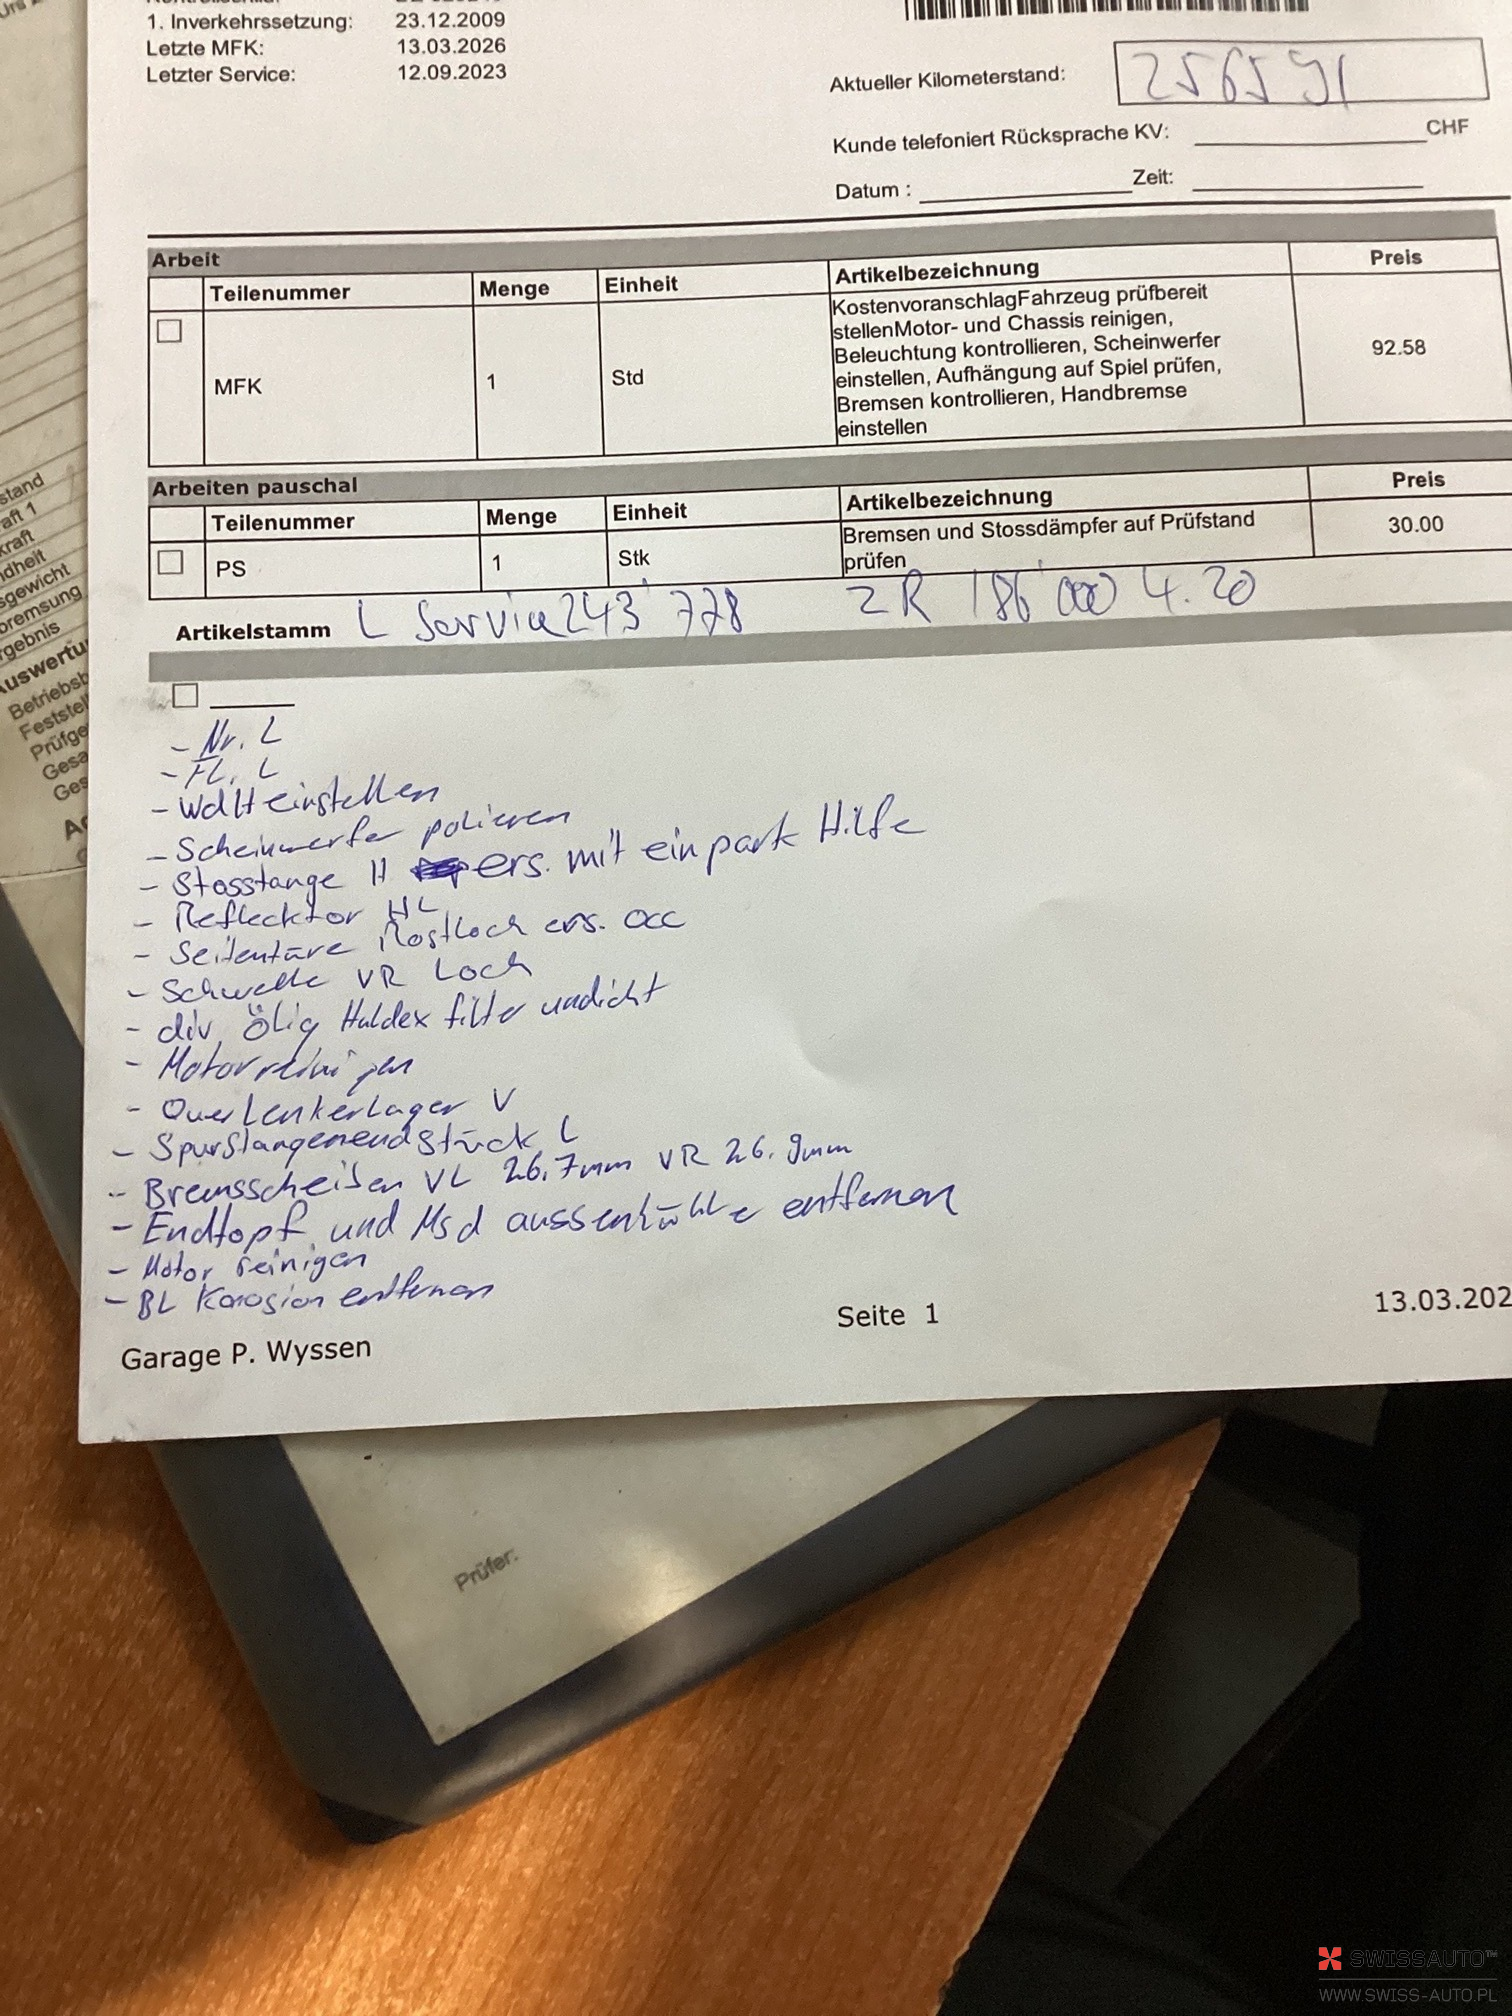 1. Inverkehrssetzung: 23.12.2009
Letzte MFK: 13.03.2026
Letzter Service: 12.09.2023
Aktueller Kilometerstand: 256591
Kunde telefoniert Rücksprache KV: CHF
Datum : Zeit:
Arbeit
Teilenummer Menge Einheit Artikelbezeichnung Preis
MFK 1 Std KostenvoranschlagFahrzeug prüfbereit
stellenMotor- und Chassis reinigen,
Beleuchtung kontrollieren, Scheinwerfer
einstellen, Aufhängung auf Spiel prüfen,
Bremsen kontrollieren, Handbremse
einstellen
92.58
Arbeiten pauschal
Teilenummer Menge Einheit Artikelbezeichnung Preis
PS 1 Stk Bremsen und Stossdämpfer auf Prüfstand
prüfen
30.00
Artikelstamm L Service 243'778 ZR 186'000 4.20
- Nr. L
- FL. L
- einstellen
- Scheinwerfer polieren
- Stosstange H ers. mit einpark Hilfe
- Reflecktor HL
- Seitentüre Rostloch ers. occ
- Schwelle VR Loch
- div ölig Haldex filter undicht
- Motor reinigen
- Querlenkerlager V
- Spurstangenendstück L
- Bremsscheiben VL 26.7mm VR 26.9mm
- Endtopf und Msd aussenhülle entfernen
- Motor reinigen
- BL Korosion entfernen
Garage P. Wyssen
Seite 1
13.03.202
stand
aft 1
kraft
ndheit
sgewicht
bremsung
rgebnis
Auswertu
Betriebsb
Feststel
Prüfge
Gesa
Ges
Prüfer:
SWISSAUTO™
WWW.SWISS-AUTO.PL